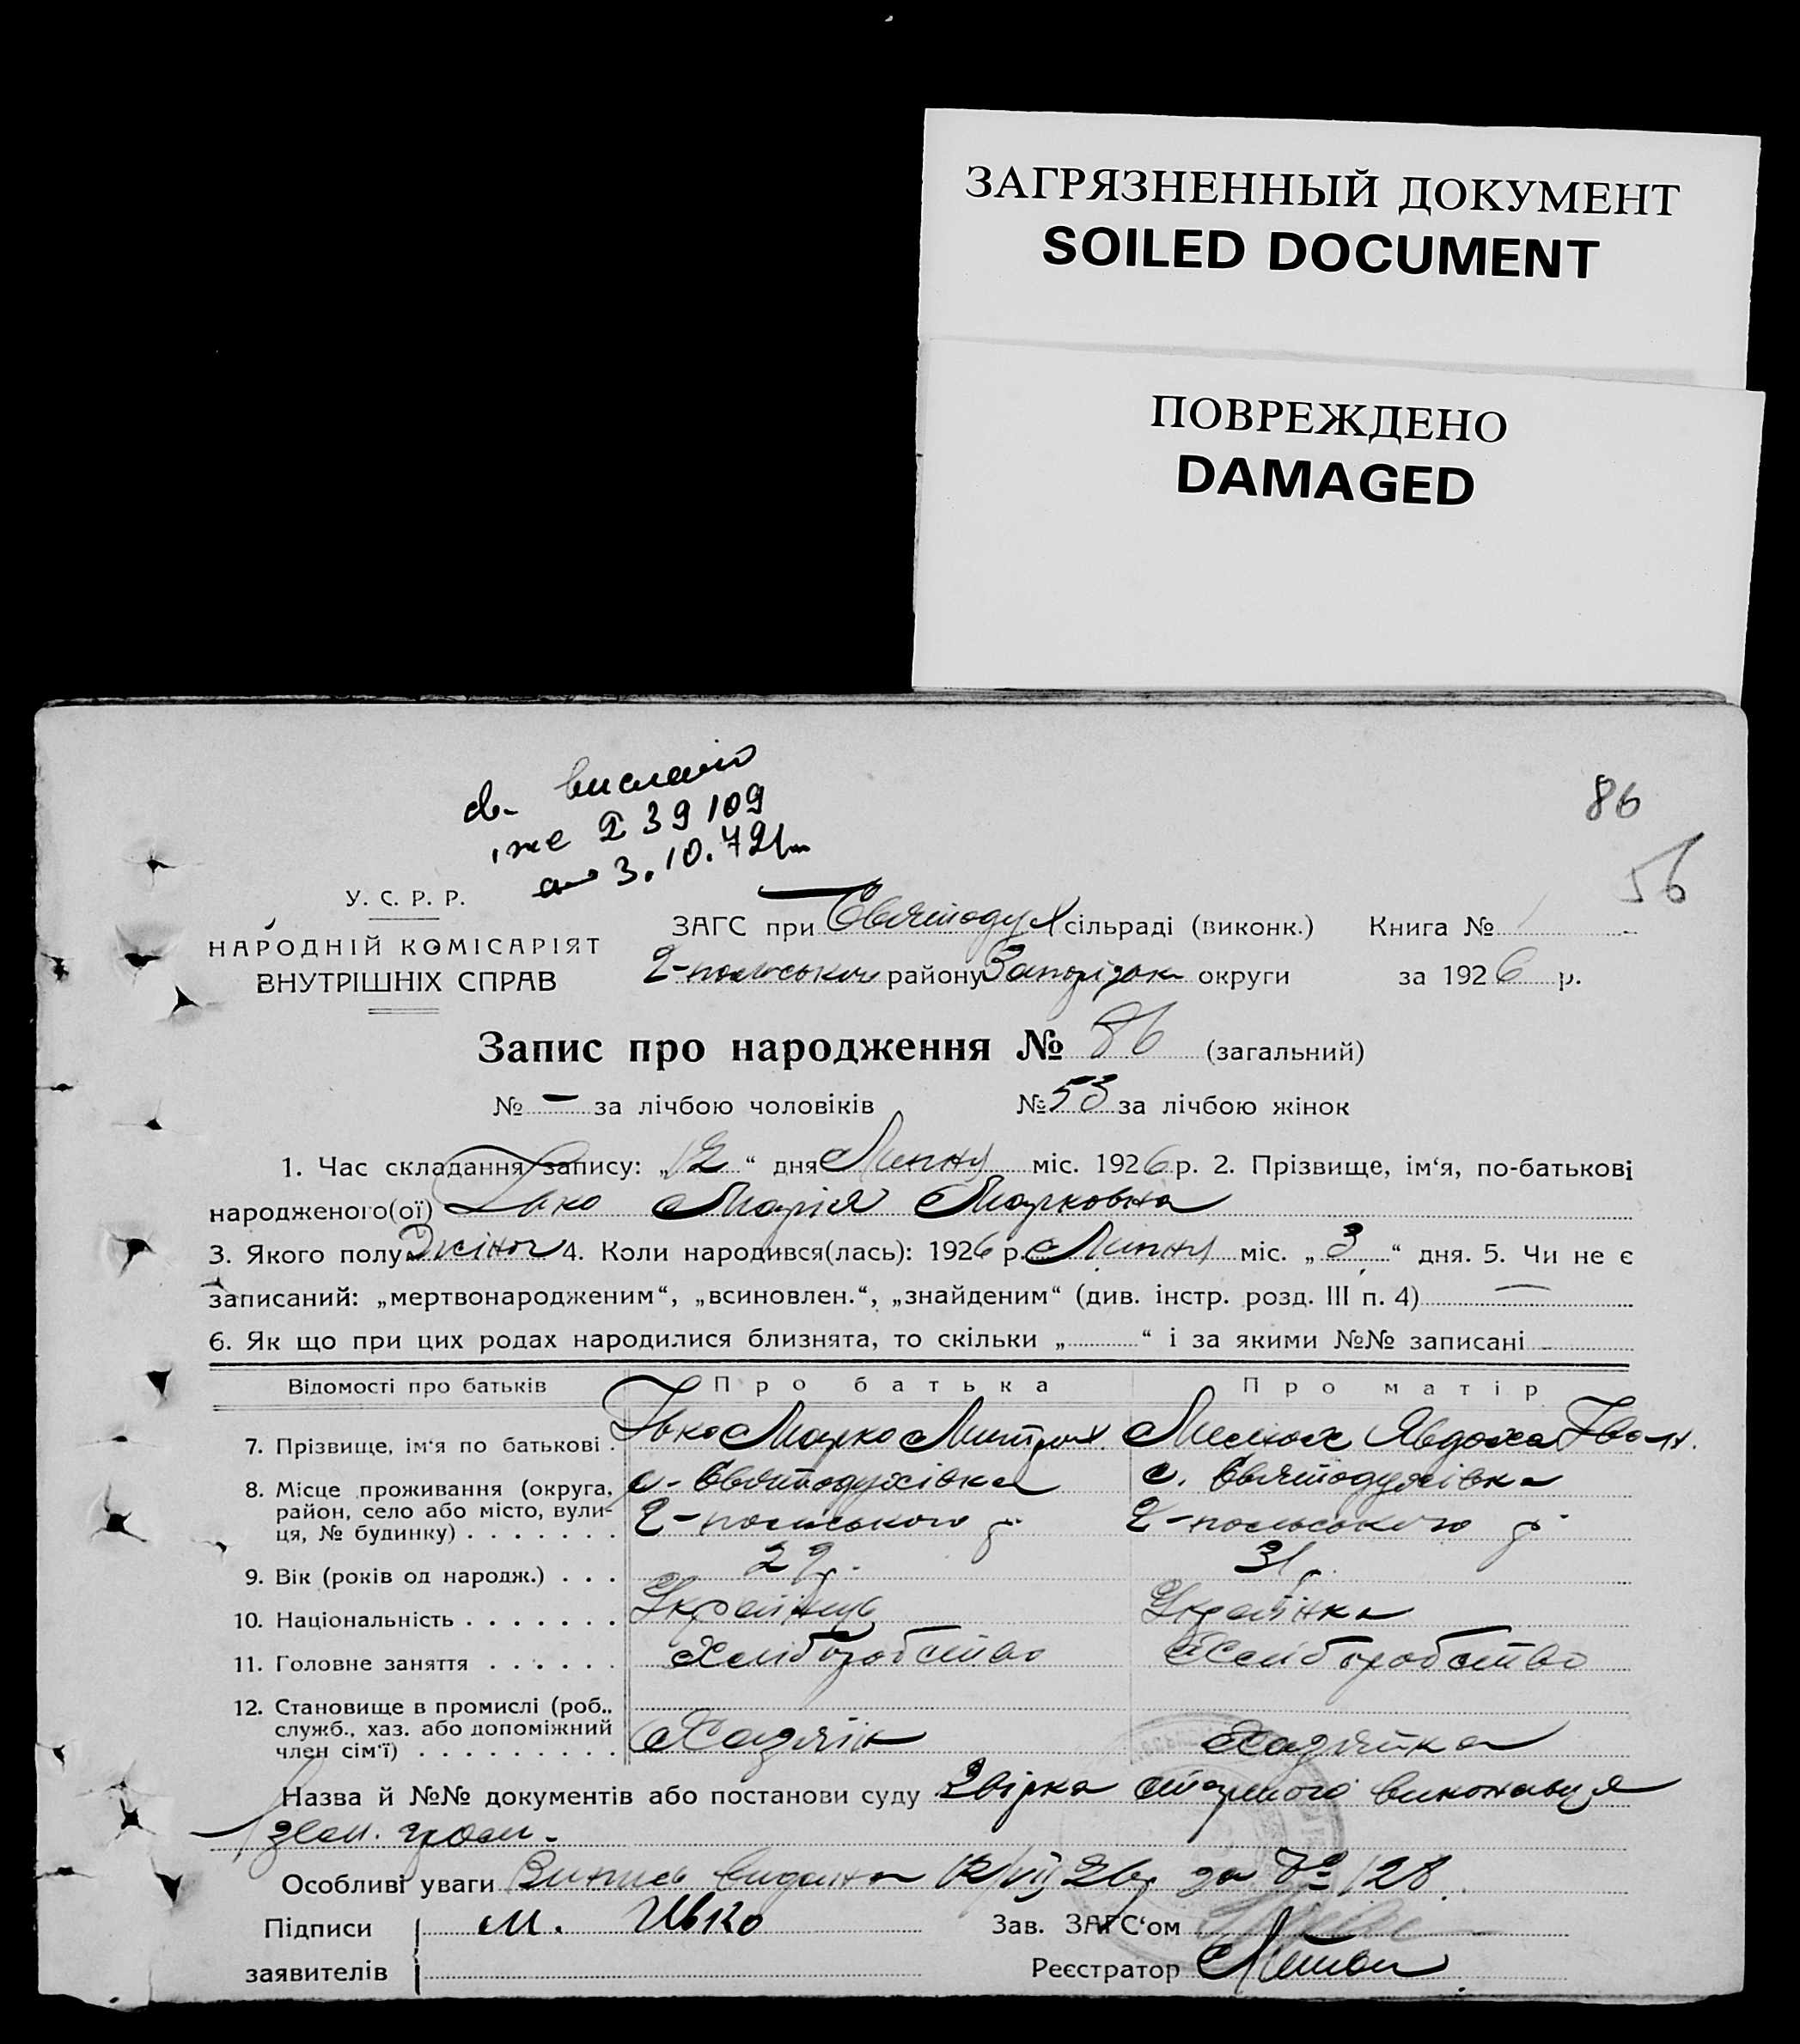 ЗАГРЯЗНЕННЫЙ ДОКУМЕНТ
SOILED DOCUMENT
ПОВРЕЖДЕНО
DAMAGED
св. вислано
39109
3.10.72
86
56
У. С. Р. Р.
НАРОДНІЙ КОМІСАРІЯТ
ВНУТРІШНІХ СПРАВ
ЗАГС при Святодух сільраді (виконк.) Книга № 1
2-польськ району Запорізьк округи за 1926 р.
Запис про народження № 86 (загальний)
№ – за лічбою чоловіків № 53 за лічбою жінок
1. Час складання запису: „12“ дня Липня міс. 1926 р. 2. Прізвище, ім‘я, по-батькові
народженого(ої) Івко Марія Марковна
3. Якого полу Жіноч 4. Коли народився(лась): 1926 р. Липня міс. „3“ дня. 5. Чи не є
записаний: „мертвонародженим“, „всиновлен.“, „знайденим“ (див. інстр. розд. III п. 4) —
6. Як що при цих родах народилися близнята, то скільки „ “ і за якими №№ записані
Відомості про батьків Про батька Про матір
7. Прізвище, ім‘я по батькові . Івко Марко Митрох. Явдоха Іван.
8. Місце проживання (округа, район, село або місто, вулиця, № будинку) . . . . . . .
с. Святодухівка с. Святодухівка
2-польського р. 2-польського р.
9. Вік (років од народж.) . . . 29 р. 31 р.
10. Національність . . . . . . . Українець Українка
11. Головне заняття . . . . . . Хліборобство Хліборобство
12. Становище в промислі (роб., служб., хаз. або допоміжний член сім‘ї) . . . . . . . . .
Хазяїн Хазяйка
Назва й №№ документів або постанови суду Звірка виконавця
зем. гром.
Особливі уваги Випись видана 12/VII 26 р. за № 128.
Підписи М. Ивко Зав. ЗАГС‘ом
заявителів Реєстратор